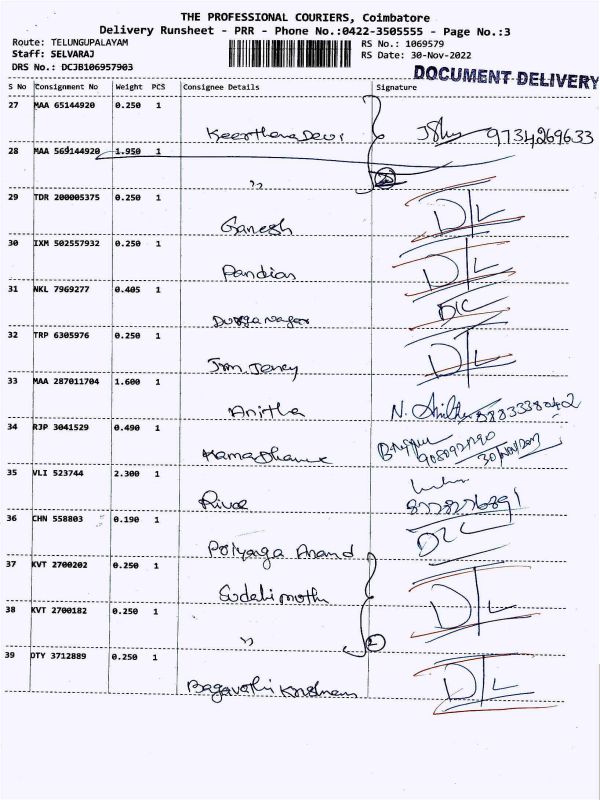 THE PROFESSIONAL COURIERS, Coimbatore
Delivery Runsheet - PRR - Phone No.:0422-3505555 - Page No.:3
Route: TELUNGUPALAYAM RS No.: 1069579
Staff: SELVARAJ RS Date: 30-Nov-2022
DRS No.: DCJB106957903
DOCUMENT DELIVERY
S No Consignment No Weight PCS Consignee Details Signature
27 MAA 65144920 0.250 1
Keerthana Devi 9734269633
28 MAA 569144920 1.950 1
" 2
29 TDR 200005375 0.250 1
Ganesh D/L
30 IXM 502557932 0.250 1
Pandian D/L
31 NKL 7969277 0.405 1
Durga nagar D/C
32 TRP 6305976 0.250 1
Jency D/L
33 MAA 287011704 1.600 1
Anitha N.
34 RJP 3041529 0.490 1
30/Nov
35 VLI 523744 2.300 1
36 CHN 558803 0.190 1
Anand
37 KVT 2700202 0.250 1
D/L
38 KVT 2700182 0.250 1
" 2
39 DTY 3712889 0.250 1
D/L